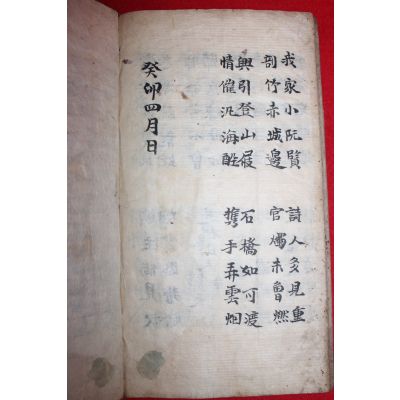 我家小阮賢
剖竹赤城邊
詩人多見重
官燭未曾燃
興引登山屐
情催汎海船
石橋如可渡
攜手弄雲烟
癸卯四月日